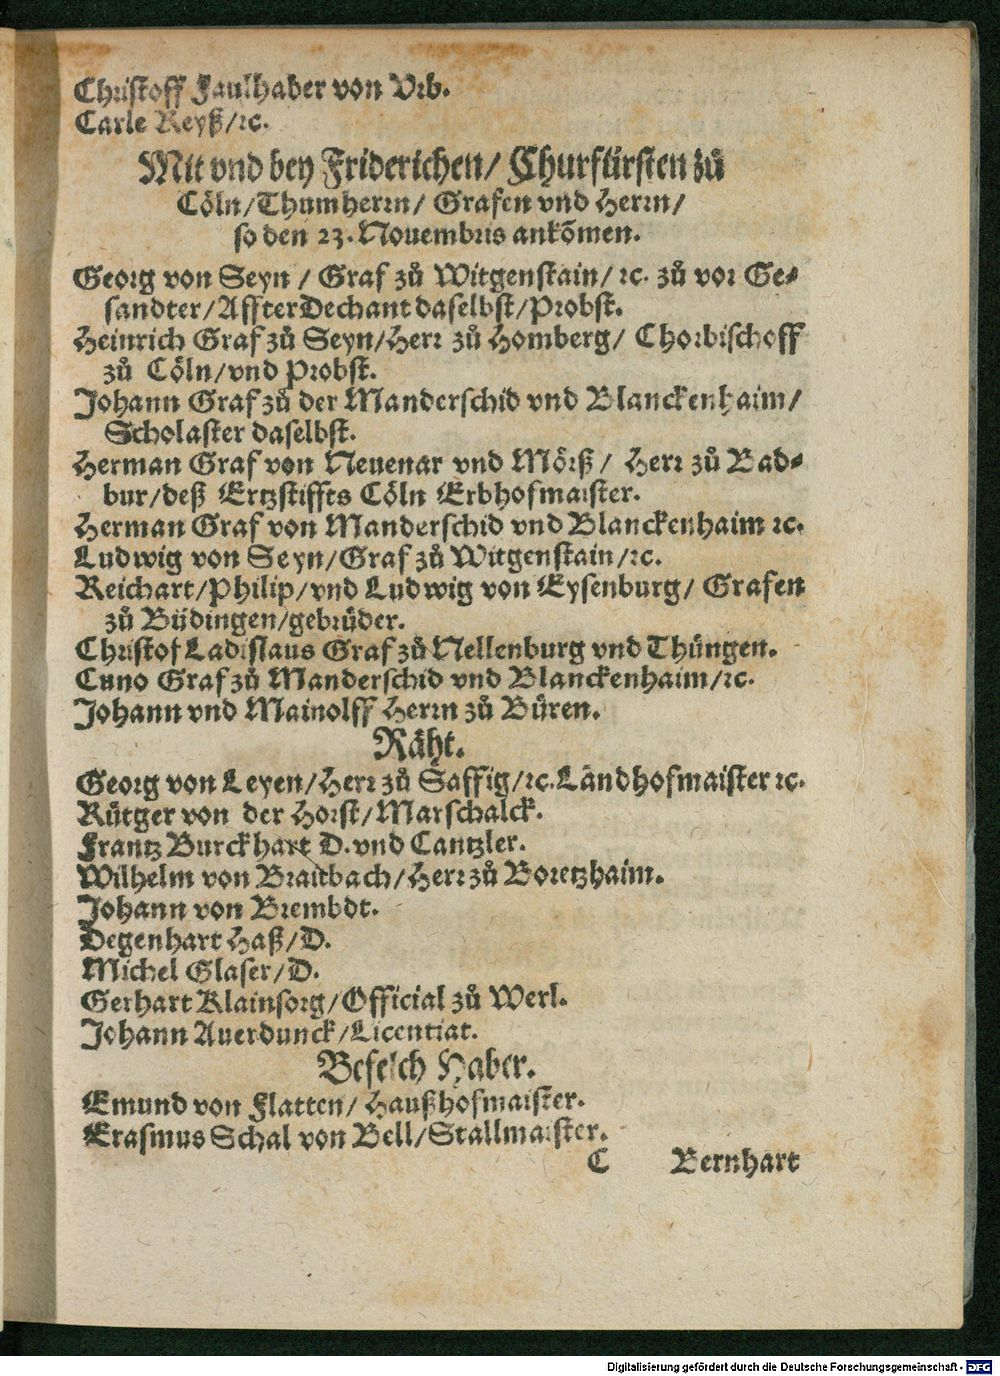 Christoff Faulhaber von Vrb.
Carle Reyß/ꝛc.
Mit vnd bey Friderichen/ Churfürsten zů
Cöln/Thumherrn/ Grafen vnd Herrn/
so den 23. Nouembris ankõmen.
Georg von Seyn / Graf zů Witgenstain/ ꝛc. zů vor Ge⸗
sandter/AffterDechant daselbst/Probst.
Heinrich Graf zů Seyn/Herr zů Homberg/ Chorbischoff
zů Cöln/vnd Probst.
Johann Graf zů der Manderschid vnd Blanckenhaim/
Scholaster daselbst.
Herman Graf von Neuenar vnd Mörß/ Herr zů Bad⸗
bur/deß Ertzstiffts Cöln Erbhofmaister.
Herman Graf von Manderschid vnd Blanckenhaim ꝛc.
Ludwig von Seyn/Graf zů Witgenstain/ꝛc.
Reichart/Philip/vnd Ludwig von Eysenburg/ Grafen
zů Büdingen/gebrüder.
Christof Ladislaus Graf zů Nellenburg vnd Thüngen.
Cuno Graf zů Manderschid vnd Blanckenhaim/ꝛc.
Johann vnd Mainolff Herrn zů Büren.
Räht.
Georg von Leyen/Herr zů Saffig/ꝛc.Lãndhofmaister ꝛc.
Rütger von der Horst/Marschalck.
Frantz Burckhart D. vnd Cantzler.
Wilhelm von Braitbach/Herr zů Boretzhaim.
Johann von Brembdt.
Degenhart Haß/D.
Michel Glaser/D.
Gerhart Klainsorg/Official zů Werl.
Johann Auerdunck/Licentiat.
Befelch Haber.
Emund von Flatten/ Haußhofmaister.
Erasmus Schal von Bell/Stallmaister.
C Bernhart
Digitalisierung gefördert durch die Deutsche Forschungsgemeinschaft - DFG